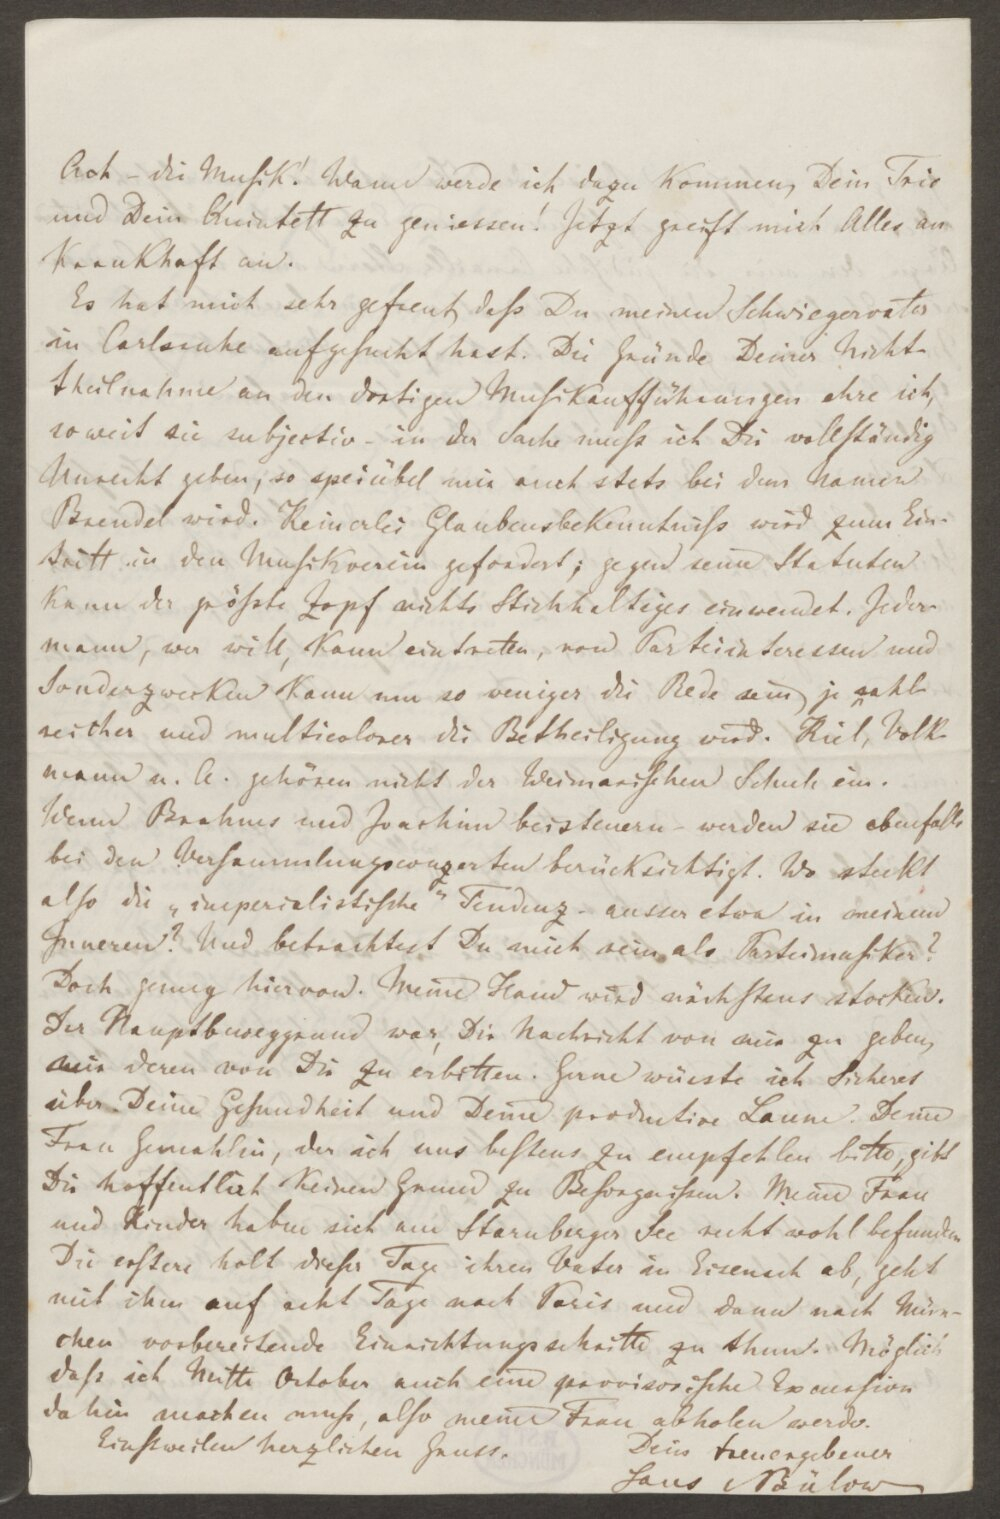 Ach – die Musik! Wann werde ich dazu kommen, Dein Trio
und Dein Quintett zu geniessen! Jetzt greift mich Alles an
krankhaft an.
Es hat mich sehr gefreut, daß Du meinen Schwiegervater
in Carlsruhe aufgesucht hast. Die Gründe Deiner Nicht-
theilnahme an den dortigen Musikaufführungen ehre ich,
soweit sie subjectiv – in der Sache muß ich Dir vollständig
Unrecht geben, so speiübel mir auch stets bei dem Namen
Brendel wird. Keinerlei Glaubensbekenntniß wird zum Ein-
tritt in den Musikverein gefordert; gegen seine Statuten
kann der größte Zopf nichts Stichhaltiges einwendet. Jeder-
mann, wer will, kann eintreten, von Parteiinteressen und
Sonderzwecken kann um so weniger die Rede sein, je zahl-
reicher und multicolorer die Betheiligung wird. Kiel, Volk-
mann u. A. gehören nicht der Weimarischen Schule an.
Wenn Brahms und Joachim beisteuern – werden sie ebenfalls
bei den Versammlungsconzerten berücksichtigt. Wo steckt
also die „imperialistische" Tendenz – ausser etwa in meinem
Inneren? Und betrachtest Du mich rein als Parteimusiker?
Doch genug hiervon. Meine Hand wird nächstens stocken.
Der Hauptbeweggrund war, Dir Nachricht von mir zu geben,
mir deren von Dir zu erbitten. Gerne wüsste ich Sicheres
über Deine Gesundheit und Deine productive Laune. Deine
Frau Gemahlin, der ich uns bestens zu empfehlen bitte, gibt
Dir hoffentlich keinen Grund zu Besorgnissen. Meine Frau
und Kinder haben sich am Starnberger See recht wohl befunden
Die erstere holt dieser Tage ihren Vater in Eisenach ab, geht
mit ihm auf acht Tage nach Paris und dann nach Mün-
chen vorbereitende Einrichtungsschritte zu thun. Möglich
daß ich Mitte October auch eine provisorische Excursion
dahin machen muß, also meine Frau abholen werde.
Einstweilen herzlichen Gruss.
Dein treuergebener
Hans v Bülow